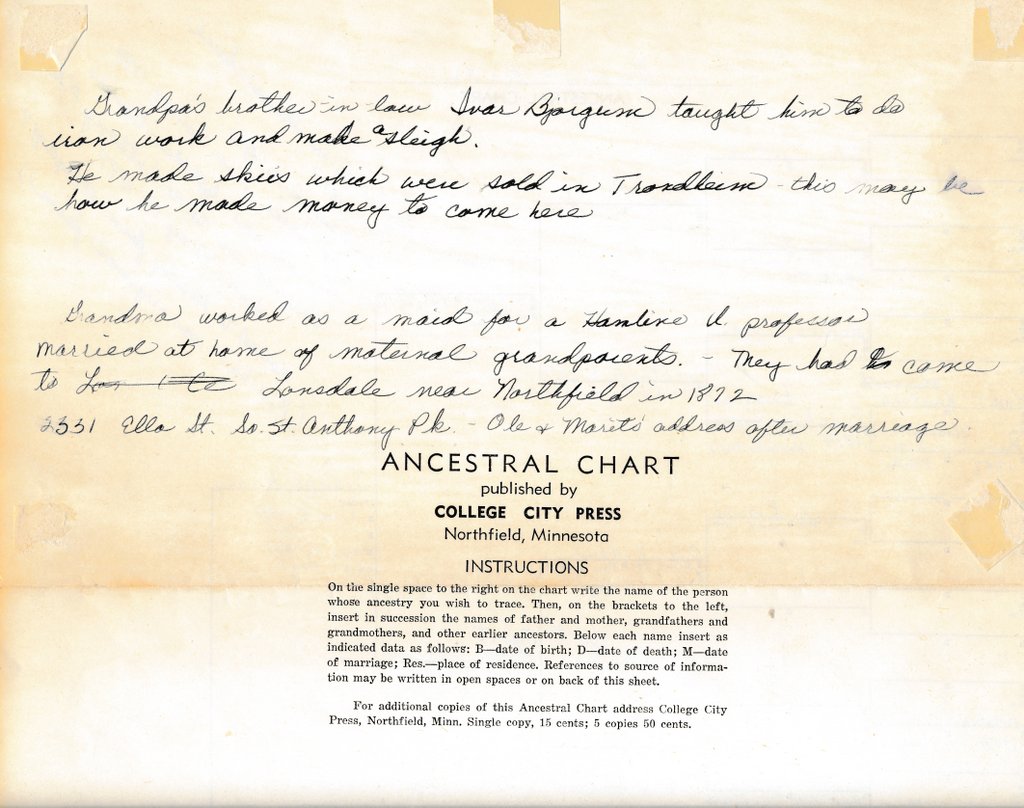 Grandpa's brother-in-law Ivar Bjorgum taught him to do
iron work and make a sleigh.
He made skiis which were sold in Trondheim - this may be
how he made money to come here
Grandma worked as a maid for a Hamline U. professor
married at home of maternal grandparents. - They had come
to Lonsdale near Northfield in 1872
2331 Ella St. So. St. Anthony Pk. - Ole & Marit's address after marriage.
ANCESTRAL CHART
published by
COLLEGE CITY PRESS
Northfield, Minnesota
INSTRUCTIONS
On the single space to the right on the chart write the name of the person
whose ancestry you wish to trace. Then, on the brackets to the left,
insert in succession the names of father and mother, grandfathers and
grandmothers, and other earlier ancestors. Below each name insert as
indicated data as follows: B—date of birth; D—date of death; M—date
of marriage; Res.—place of residence. References to source of informa-
tion may be written in open spaces or on back of this sheet.
For additional copies of this Ancestral Chart address College City
Press, Northfield, Minn. Single copy, 15 cents; 5 copies 50 cents.